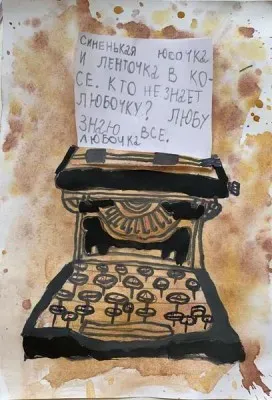 СИНЕНЬКАЯ ЮБОЧКА
И ЛЕНТОЧКА В КО-
СЕ. КТО НЕ ЗНАЕТ
ЛЮБОЧКУ? ЛЮБУ
ЗНАЮ ВСЕ.
ЛЮБОЧКА